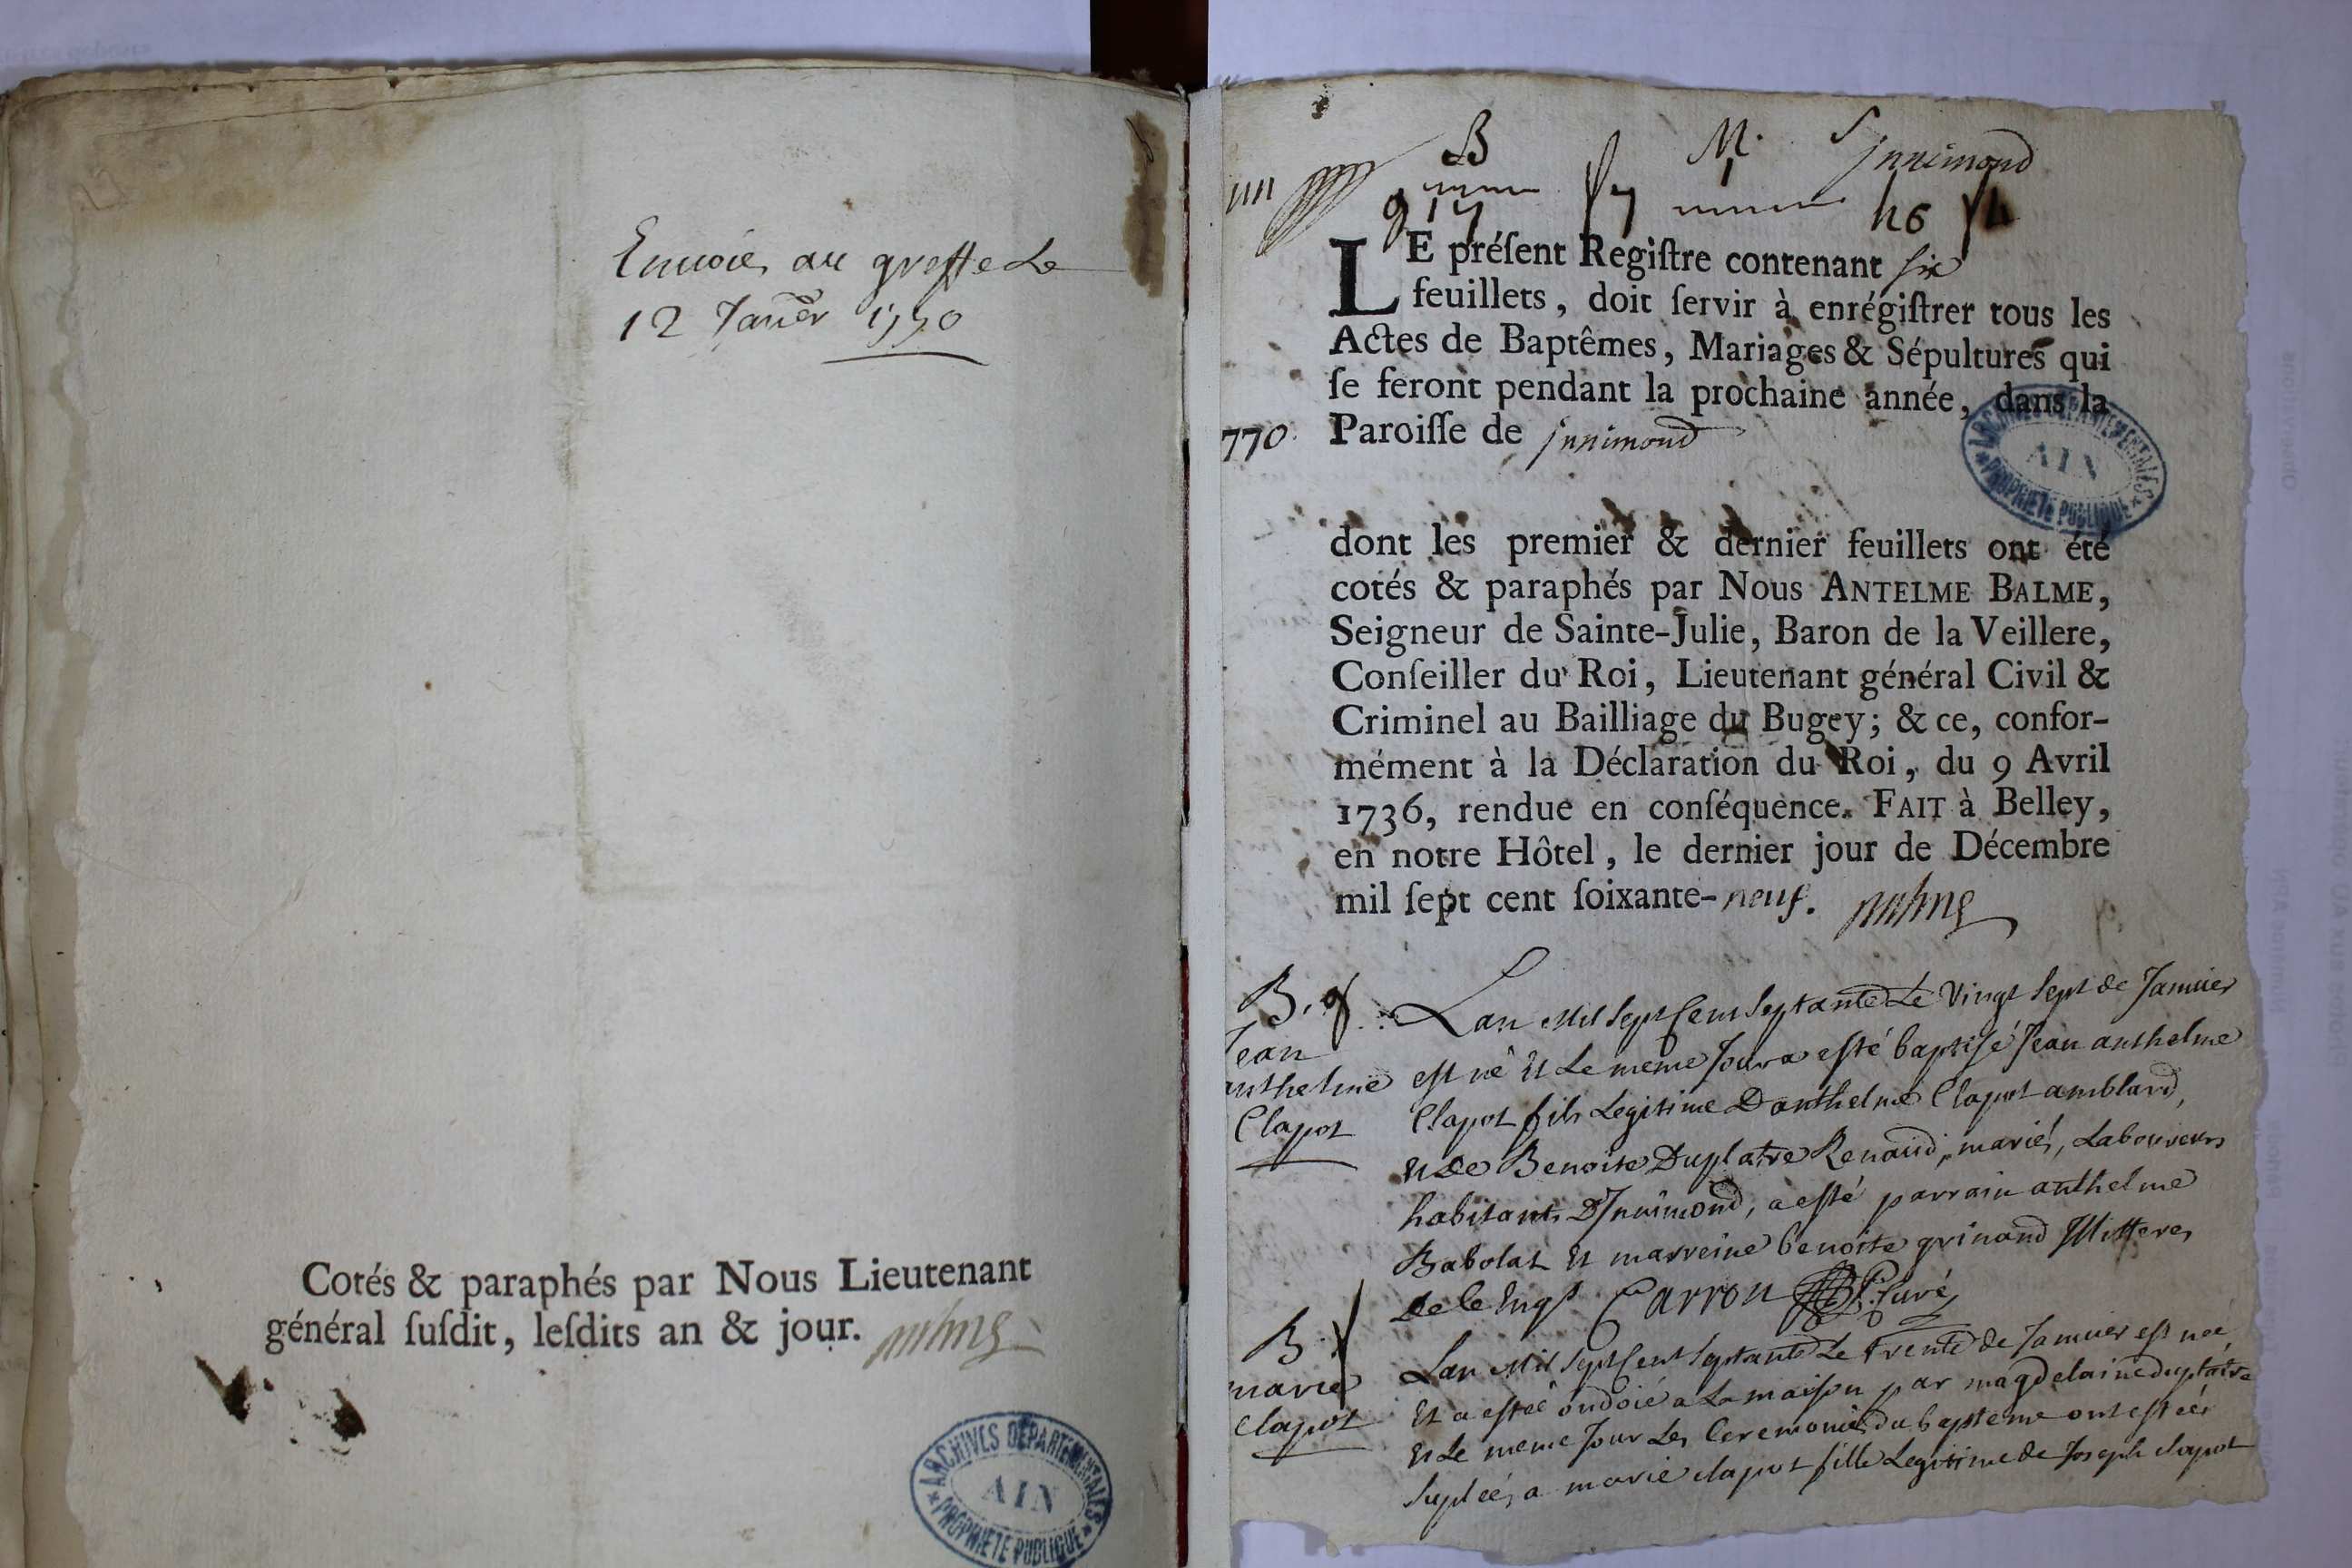 Envoiés au greffe Le
12 Janer 1770
Cotés & paraphés par Nous Lieutenant
général ſuſdit, leſdits an & jour.
ARCHIVES DÉPARTEMENTALES
AIN
PROPRIÉTÉ PUBLIQUE
B M. S jnnimond
LE préſent Regiſtre contenant six
feuillets, doit ſervir à enrégiſtrer tous les
Actes de Baptêmes, Mariages & Sépultures qui
ſe feront pendant la prochaine année, dans la
770. Paroiſſe de jnnimond
ARCHIVES DÉPARTEMENTALES
AIN
PROPRIÉTÉ PUBLIQUE
dont les premier & dernier feuillets ont été
cotés & paraphés par Nous ANTELME BALME,
Seigneur de Sainte-Julie, Baron de la Veillere,
Conſeiller du Roi, Lieutenant général Civil &
Criminel au Bailliage du Bugey; & ce, confor-
mément à la Déclaration du Roi, du 9 Avril
1736, rendue en conſéquence. FAIT à Belley,
en notre Hôtel, le dernier jour de Décembre
mil ſept cent ſoixante-neuf.
B. g.
Jean
anthelme
Clapot
Lan Mil Sept Cent Septante Le Vingt Sept de Januier
est né Et Le meme Jour a esté baptisé Jean anthelme
Clapot fils Legitime Danthelme Clapot amblard,
et de Benoite Duplatre Renaud, mariés, Laboureurs
habitants DJnnimond, a esté parrain anthelme
Babolat Et marreine benoite grinand Jllitteres
de ce Enqs Carron Curé
B. f
marie
Clapot
Lan Mil Sept Cent Septante Le trente de Januier est née
Et a estée ondoiée a La maison par magdelaine duplatre
Et Le meme Jour Les Ceremonies du bapteme ont estées
Supléés a marie clapot fille Legitime de Joseph clapot